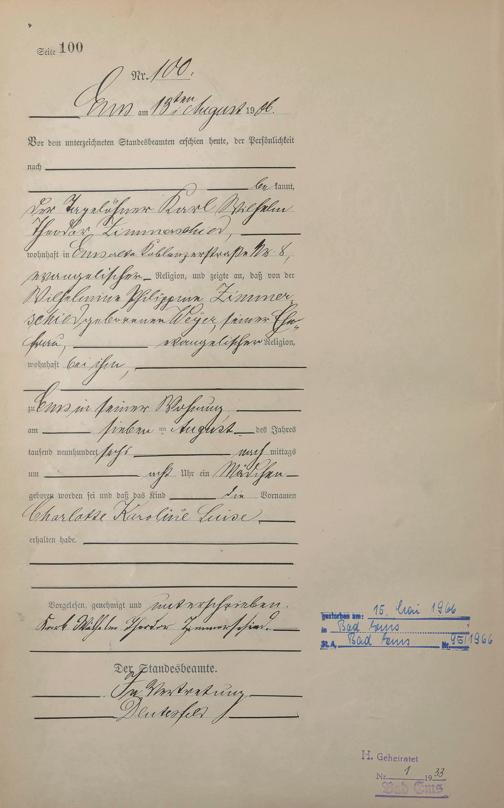 Seite 100
Nr. 100.
Ems am 13ten August 1906.
Vor dem unterzeichneten Standesbeamten erschien heute, der Persönlichkeit
nach
be kannt,
der Tagelöhner Karl Wilhelm
Theodor Zimmerschied,
wohnhaft in Ems alte Koblenzerstraße Nr 8,
evangelischer Religion, und zeigte an, daß von der
Wilhelmine Philippine Zimmer-
schied geborenen Weyer, seiner Ehe-
frau, evangelischer Religion,
wohnhaft bei ihm,
zu Ems in seiner Wohnung
am sieben ten August des Jahres
tausend neunhundert sechs nach mittags
um acht Uhr ein Mädchen
geboren worden sei und daß das Kind die Vornamen
Charlotte Karoline Luise
erhalten habe.
Vorgelesen, genehmigt und unterschrieben.
Karl Wilhelm Theodor Zimmerschied.
Der Standesbeamte.
In Vertretung
gestorben am: 15. Mai 1966
in Bad Ems
St. A. Bad Ems Nr. /1966
H. Geheiratet
Nr. 1 1933
Bad Ems